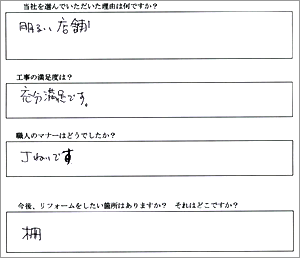 当社を選んでいただいた理由は何ですか?
明るい店舗
工事の満足度は?
充分満足です。
職人のマナーはどうでしたか?
丁ねいです
今後、リフォームをしたい箇所はありますか? それはどこですか?
棚